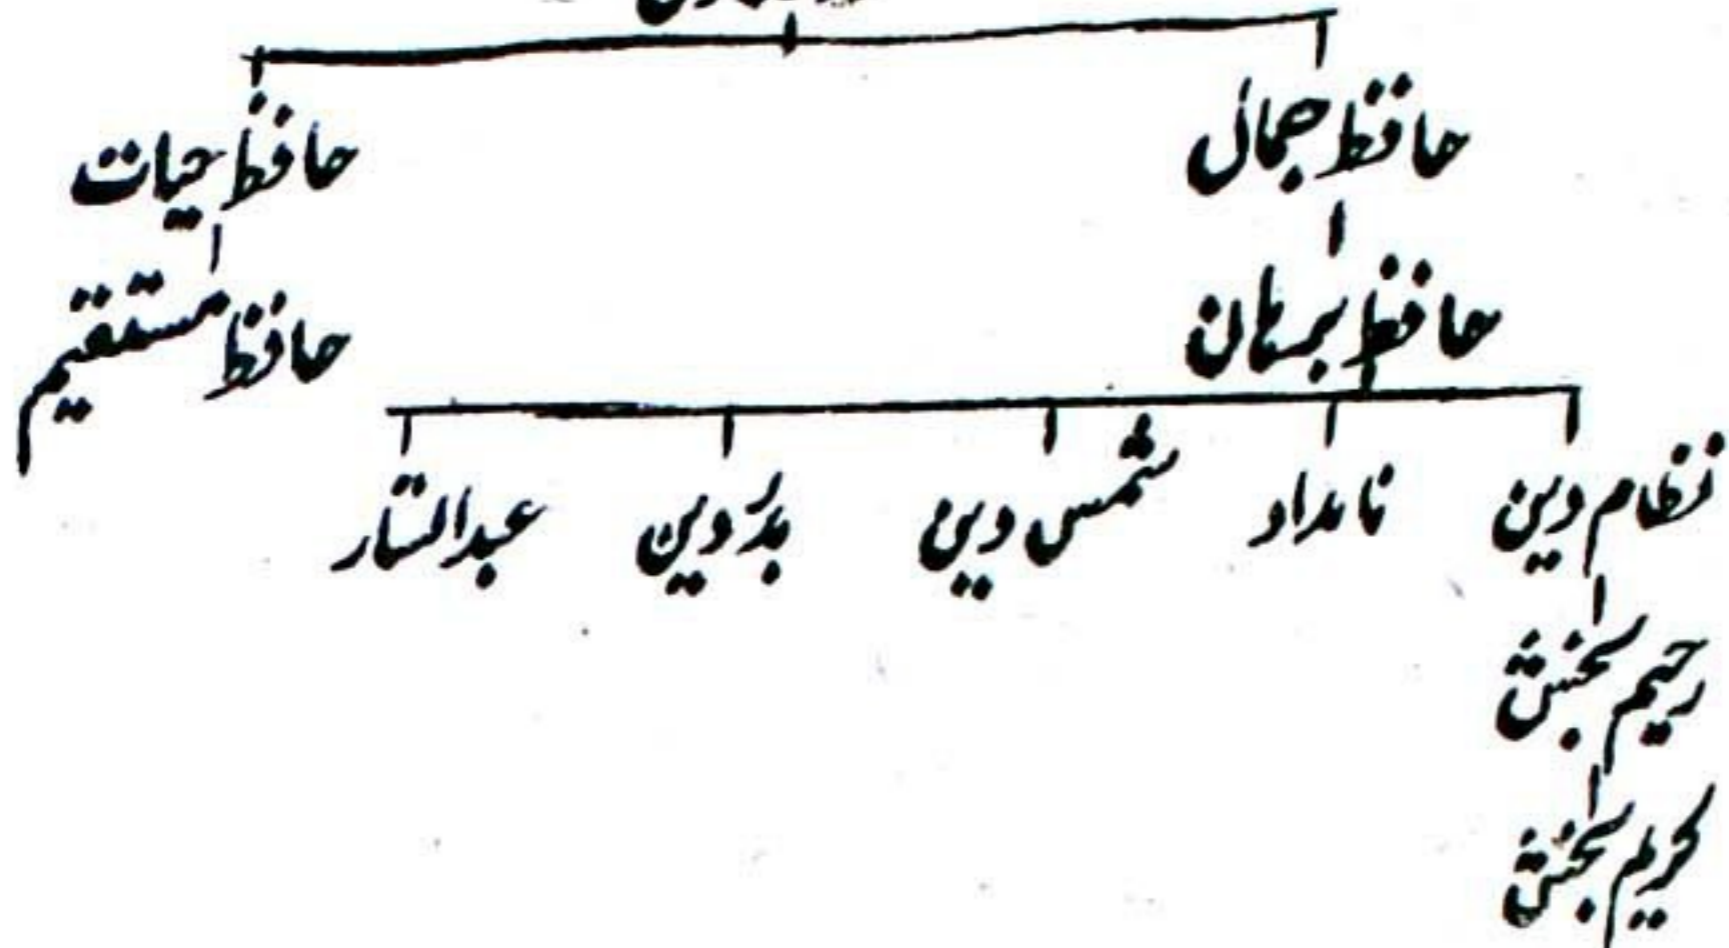 حافظ جمال
حافظ حیات
حافظ برہان
حافظ مستقیم
نظام دین
نامداد
شمس دین
بدر دین
عبدالستار
رحیم بخش
کریم بخش